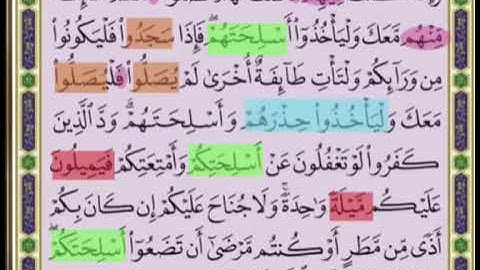 مِّنْهُم مَّعَكَ وَلْيَأْخُذُوٓا۟ أَسْلِحَتَهُمْ ۖ فَإِذَا سَجَدُوا۟ فَلْيَكُونُوا۟
مِن وَرَآئِكُمْ وَلْتَأْتِ طَآئِفَةٌ أُخْرَىٰ لَمْ يُصَلُّوا۟ فَلْيُصَلُّوا۟
مَعَكَ وَلْيَأْخُذُوا۟ حِذْرَهُمْ وَأَسْلِحَتَهُمْ ۗ وَدَّ ٱلَّذِينَ
كَفَرُوا۟ لَوْ تَغْفُلُونَ عَنْ أَسْلِحَتِكُمْ وَأَمْتِعَتِكُمْ فَيَمِيلُونَ
عَلَيْكُم مَّيْلَةً وَٰحِدَةً ۚ وَلَا جُنَاحَ عَلَيْكُمْ إِن كَانَ بِكُمْ
أَذًى مِّن مَّطَرٍ أَوْ كُنتُم مَّرْضَىٰٓ أَن تَضَعُوٓا۟ أَسْلِحَتَكُمْ ۖ